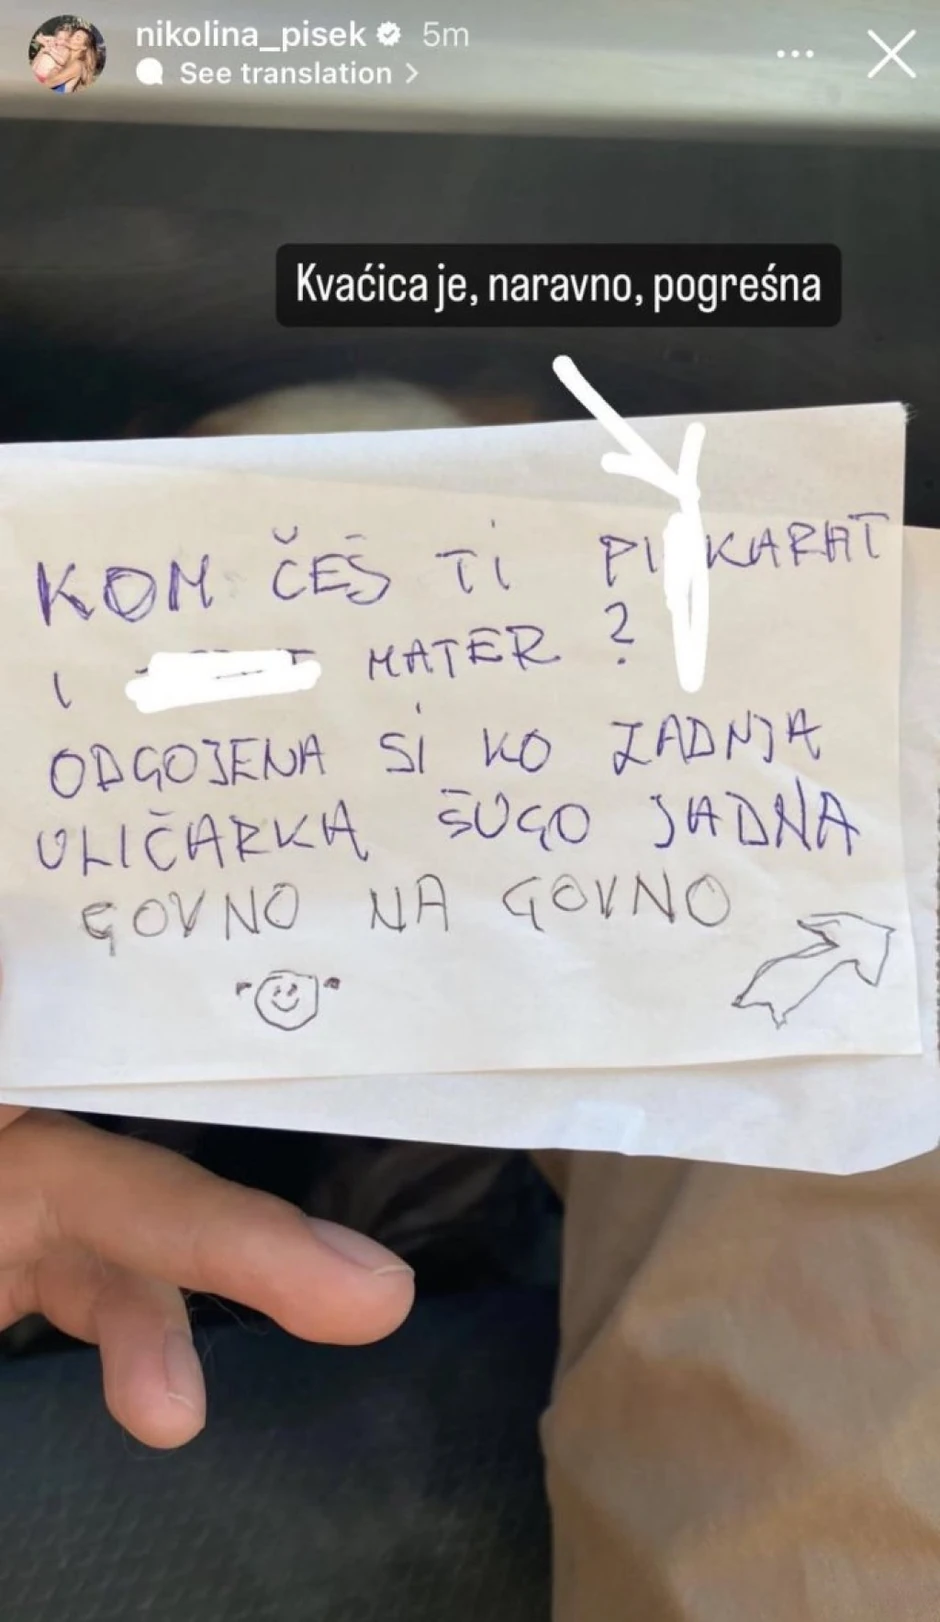 nikolina_pisek 5m
See translation >
Kvaćica je, naravno, pogreśna
KOM ČEŠ TI PI KARAT
I MATER ?
ODGOJENA SI KO ZADNJA
ULIČARKA ŠUGO JADNA
GOVNO NA GOVNO